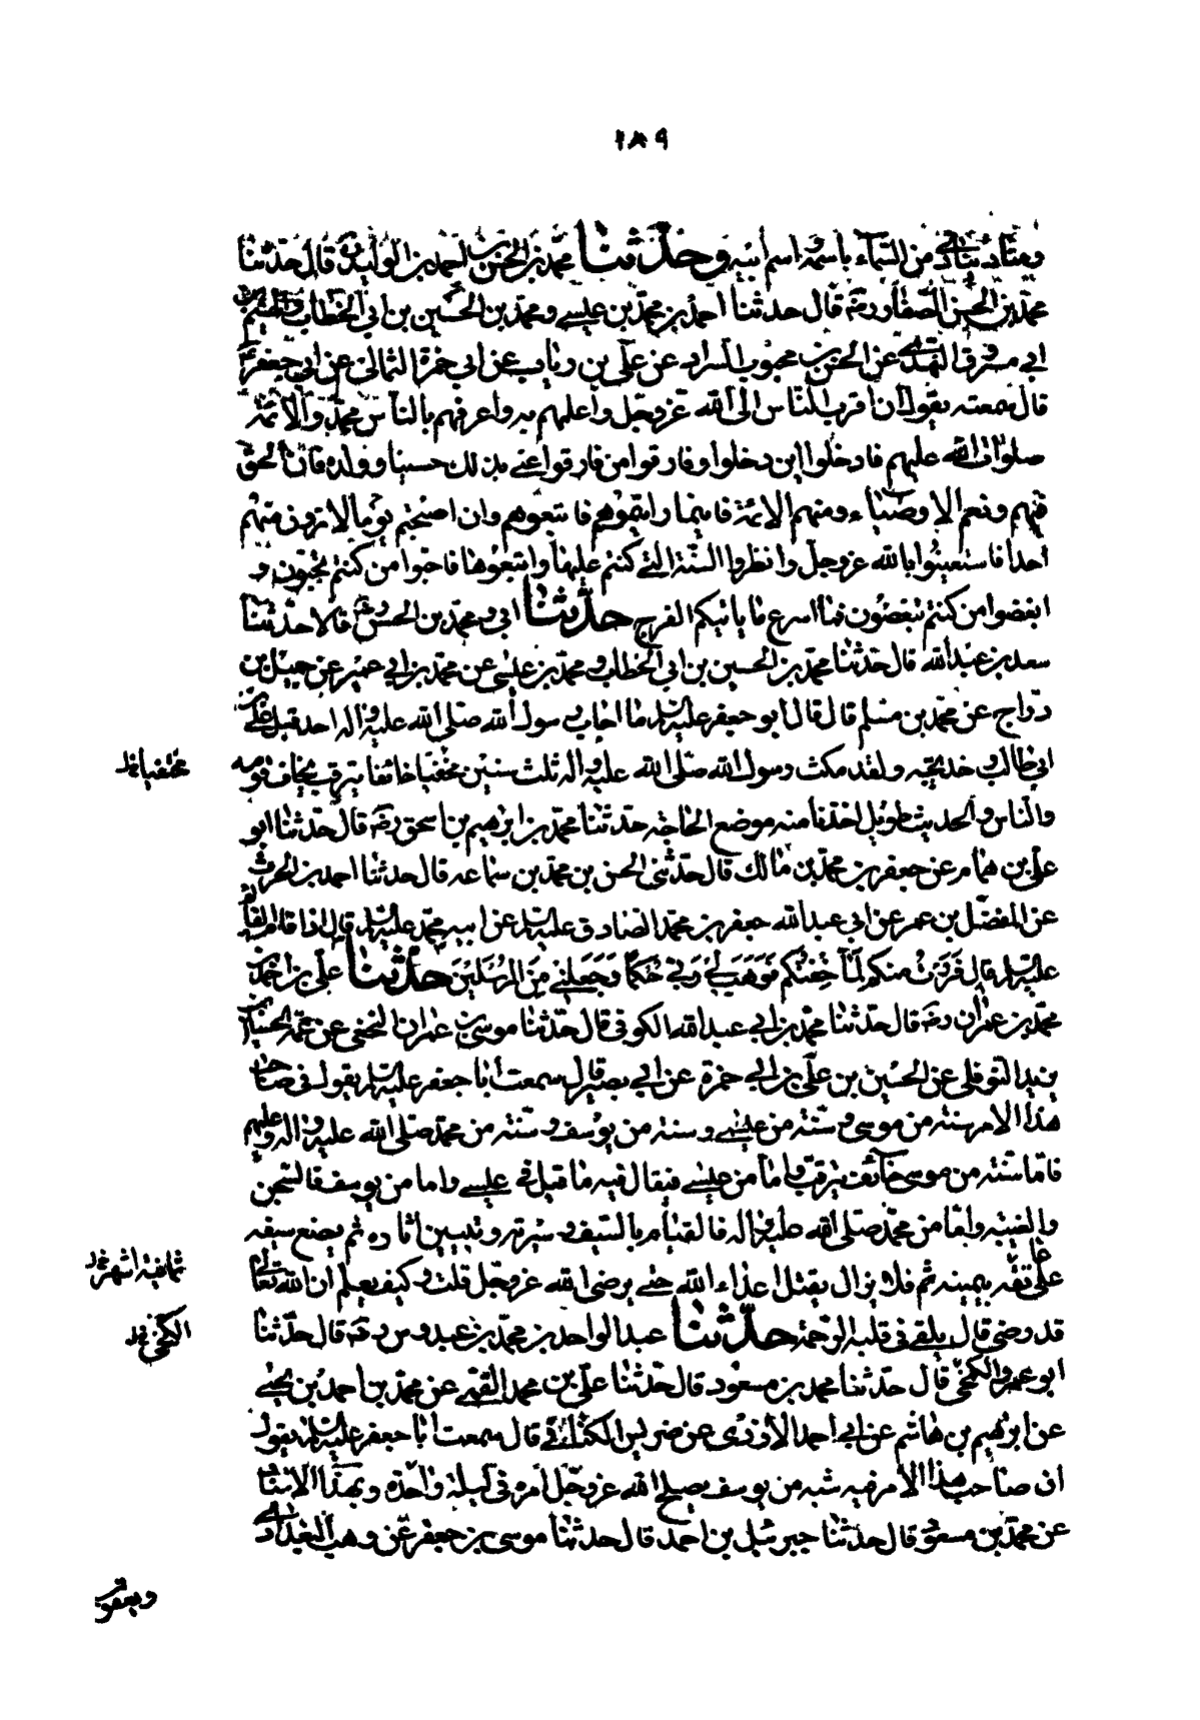 ١٨٩
ومناد ينادي من السماء باسمه واسم ابيه وحدثنا محمد بن الحسن بن احمد بن الوليد رض قال حدثنا
محمد بن الحسن الصفار رضه قال حدثنا احمد بن محمد بن عيسى ومحمد بن الحسين بن ابي الخطاب والهيثم بن
ابي مسروق النهدي عن الحسن بن محبوب السراد عن علي بن رياب عن ابي حمزة الثمالي عن ابي جعفر ع
قال سمعته يقول ان اقرب الناس الى الله عز وجل واعلمهم به واعرفهم بالناس محمد والائمة
صلوات الله عليهم فادخلوا اين دخلوا وفارقوا من فارقوا عنى بذلك حسينا وولده فان الحق
فيهم ونعم الاوصياء ومنهم الائمة فاينما رايتموهم فاتبعوهم وان اصبحتم يوما لا ترون منهم
احدا فاستعينوا بالله عز وجل وانظروا السنة التي كنتم عليها واتبعوها فاحبوا من كنتم تحبون و
ابغضوا من كنتم تبغضون فما اسرع ما ياتيكم الفرج حدثنا ابي ومحمد بن الحسن رض قالا حدثنا
سعد بن عبد الله قال حدثنا محمد بن الحسين بن ابي الخطاب ومحمد بن عيسى عن محمد بن ابي عمير عن جميل بن
دراج عن محمد بن مسلم قال قال ابو جعفر عليه السلم ما اجاب رسول الله صلى الله عليه واله احد قبل علي بن
ابي طالب وخديجة ولقد مكث رسول الله صلى الله عليه واله ثلث سنين مختفيا خائفا يترقب يخاف قومه
مختفيا
والناس والحديث طويل اخذنا منه موضع الحاجة حدثنا محمد بن ابرهيم بن اسحق رضه قال حدثنا ابو
علي بن همام عن جعفر بن محمد بن مالك قال حدثني الحسن بن محمد بن سماعه قال حدثنا احمد بن الحرث
عن المفضل بن عمر عن ابي عبد الله جعفر بن محمد الصادق عليه السلم عن ابيه محمد عليه السلم قال اذا قام القائم
عليه السلم قال فَفَرَرْتُ منكم لَمَّا خِفْتُكُم فَوَهَبَ لِي رَبِّي حُكْمًا وَجَعَلَنِي مِنَ المُرْسَلِينَ حدثنا علي بن احمد بن
محمد بن عمران رضه قال حدثنا محمد بن ابي عبد الله الكوفي قال حدثنا موسى بن عمران النخعي عن عمه الحسين بن
يزيد النوفلي عن الحسين بن علي بن ابي حمزة عن ابي بصير قال سمعت ابا جعفر عليه السلم يقول في صاحب
هذا الامر سنة من موسى وسنة من عيسى وسنة من يوسف وسنة من محمد صلى الله عليه واله وعليهم
فاما سنة من موسى خائف يترقب واما من عيسى فيقال فيه ما قيل في عيسى واما من يوسف فالسجن
والغيبة واما من محمد صلى الله عليه واله فالقيام بالسيف وسيرته وتبيين اثاره ثم يضع سيفه
ثمانية اشهر
على عاتقه بيمينه ثم فلا يزال يقتل اعداء الله حتى يرضى الله عز وجل قلت وكيف يعلم ان الله تعالى
قد رضي قال يلقى في قلبه الرحمة حدثنا عبد الواحد بن محمد بن عبدوس رضه قال حدثنا
الكجي
ابو عمرو الكجي قال حدثنا محمد بن مسعود قال حدثنا علي بن محمد القمي عن محمد بن احمد بن يحيى
عن ابرهيم بن هاشم عن ابي احمد الازدي عن ضريس الكناسي قال سمعت ابا جعفر عليه السلم يقول
ان صاحب هذا الامر فيه شبه من يوسف يصلح الله عز وجل امره في ليلة واحدة وبهذا الاسناد
عن محمد بن مسعود قال حدثنا جبرئيل بن احمد قال حدثنا موسى بن جعفر عن وهب البغدادي
ويعقوب